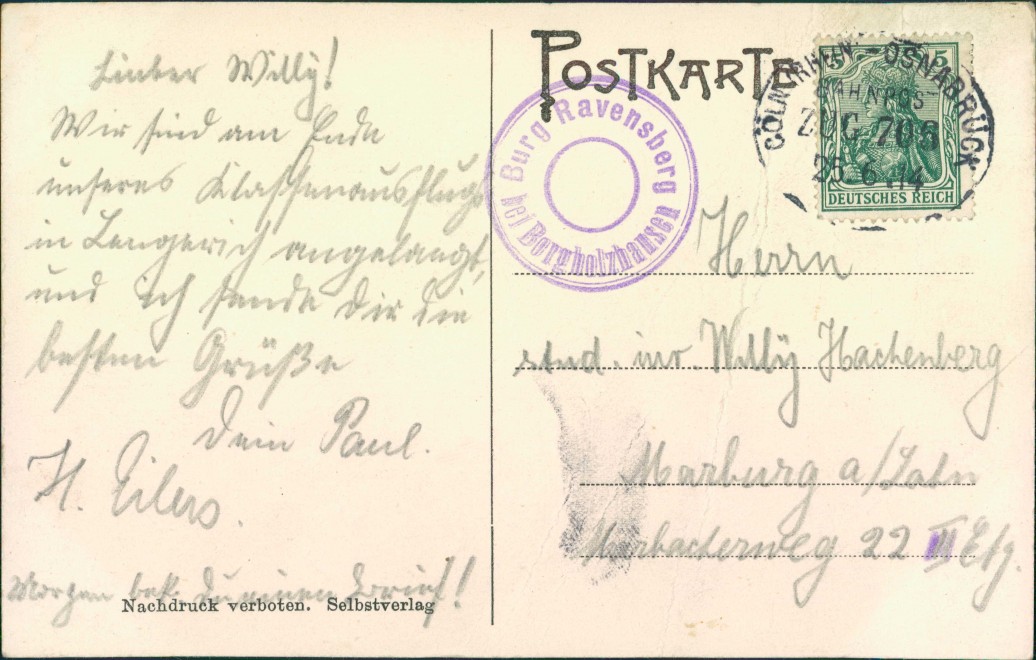 Lieber Willy!
Wir sind am Ende
unseres Klassenausflugs
in Lengerich angelangt,
und ich sende Dir die
besten Grüße
Dein Paul.
H. Eilers.
Morgen bek. Du einen Brief!
Nachdruck verboten. Selbstverlag
POSTKARTE
Burg Ravensberg
bei Borgholzhausen
CÖLN (RHEIN) - OSNABRÜCK
BAHNPOST
ZUG 706
25.6.14
5
DEUTSCHES REICH
Herrn
stud. inr. Willy Hachenberg
Marburg a/Lahn
Marbacherweg 22 III Etg.